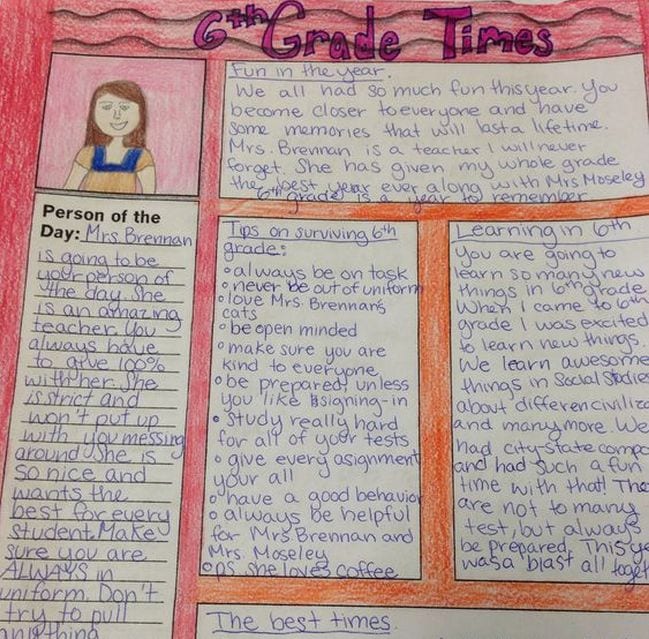 6th Grade Times
Fun in the year.
We all had so much fun this year. You
become closer to everyone and have
some memories that will last a lifetime.
Mrs. Brennan is a teacher I will never
forget. She has given my whole grade
the best year ever along with Mrs Moseley
6th grade is a year to remember
Person of the
Day: Mrs Brennan
is going to be
your person of
the day. She
is an amazing
teacher. You
always have
to give 100%
with her. She
is strict and
won't put up
with you messing
around. She is
so nice and
wants the
best for every
student. Make
sure you are
ALWAYS in
uniform. Don't
try to pull
anything
Tips on surviving 6th
grade:
• always be on task
• never be out of uniform
• love Mrs. Brennan's
cats
• be open minded
• make sure you are
kind to everyone
• be prepared, unless
you like signing-in
• study really hard
for all of your tests
• give every asignment
your all
• have a good behavior
• always be helpful
for Mrs Brennan and
Mrs. Moseley
• ps she loves coffee
Learning in 6th
You are going to
learn so many new
things in 6th grade
When I came to 6th
grade I was excited
to learn new things.
We learn awesome
things in Social Studies
about differen civiliz
and many more. We
had city-state compe
and had such a fun
time with that! The
are not to many
test, but always
be prepared. This ye
was a blast all toget
The best times.